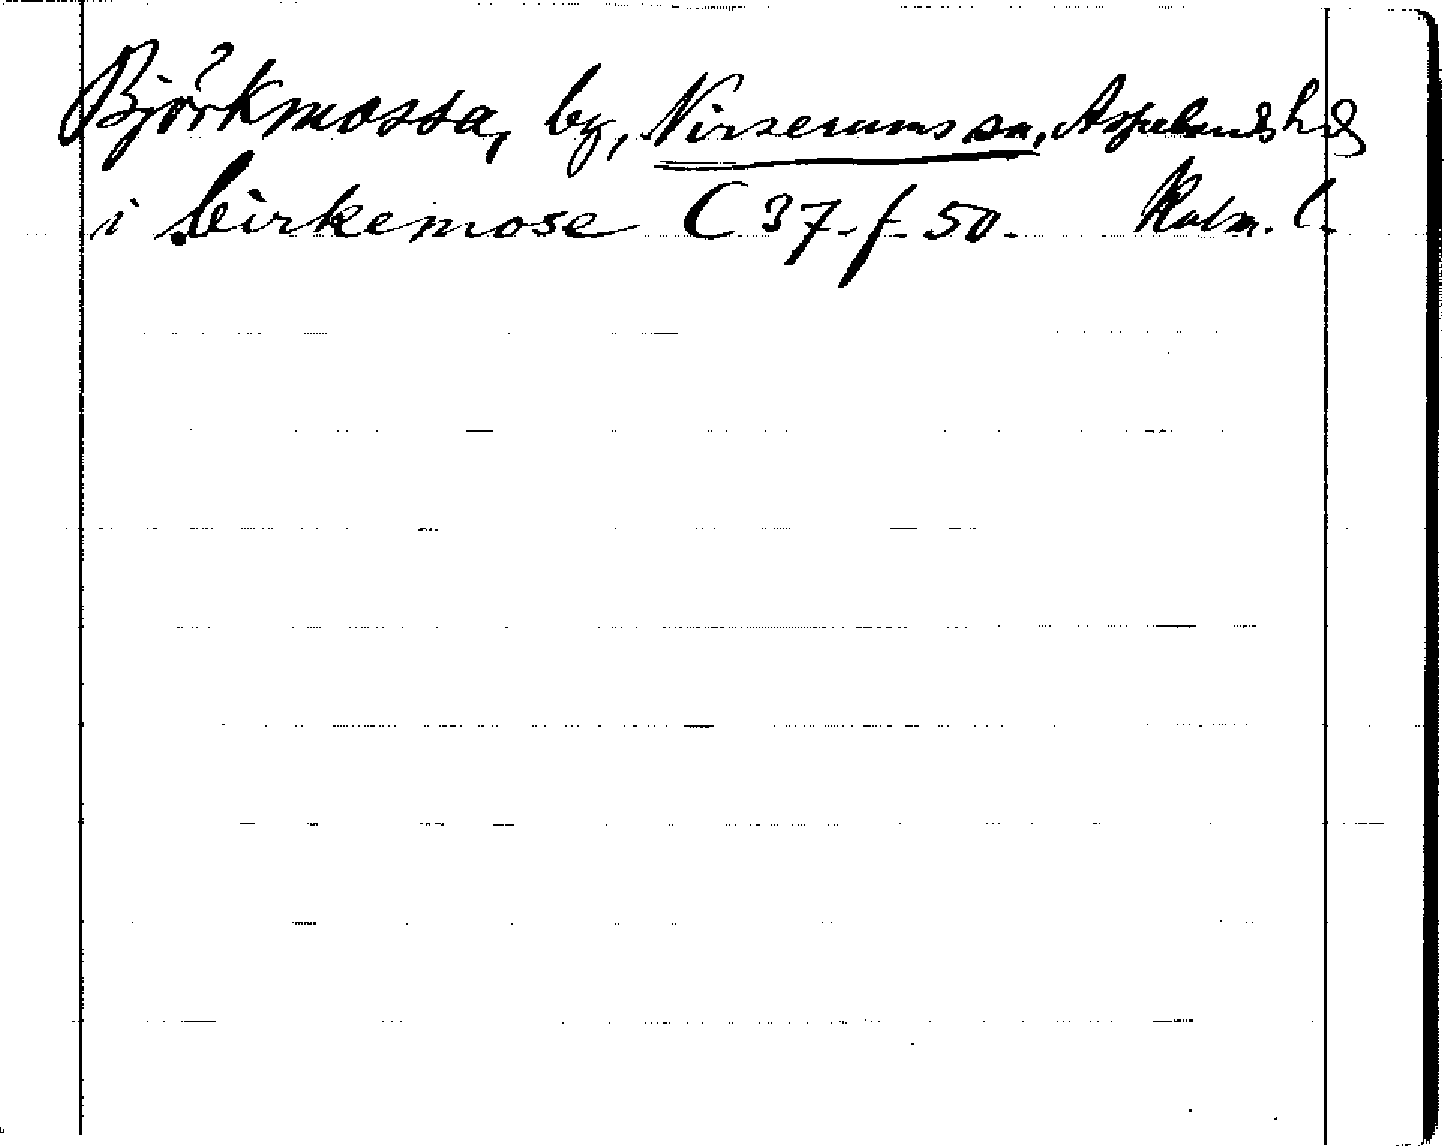 Björkmossa, by, Virserums sn, Aspelands hd
i birkemose C 37 f. 50. Kalm. l.